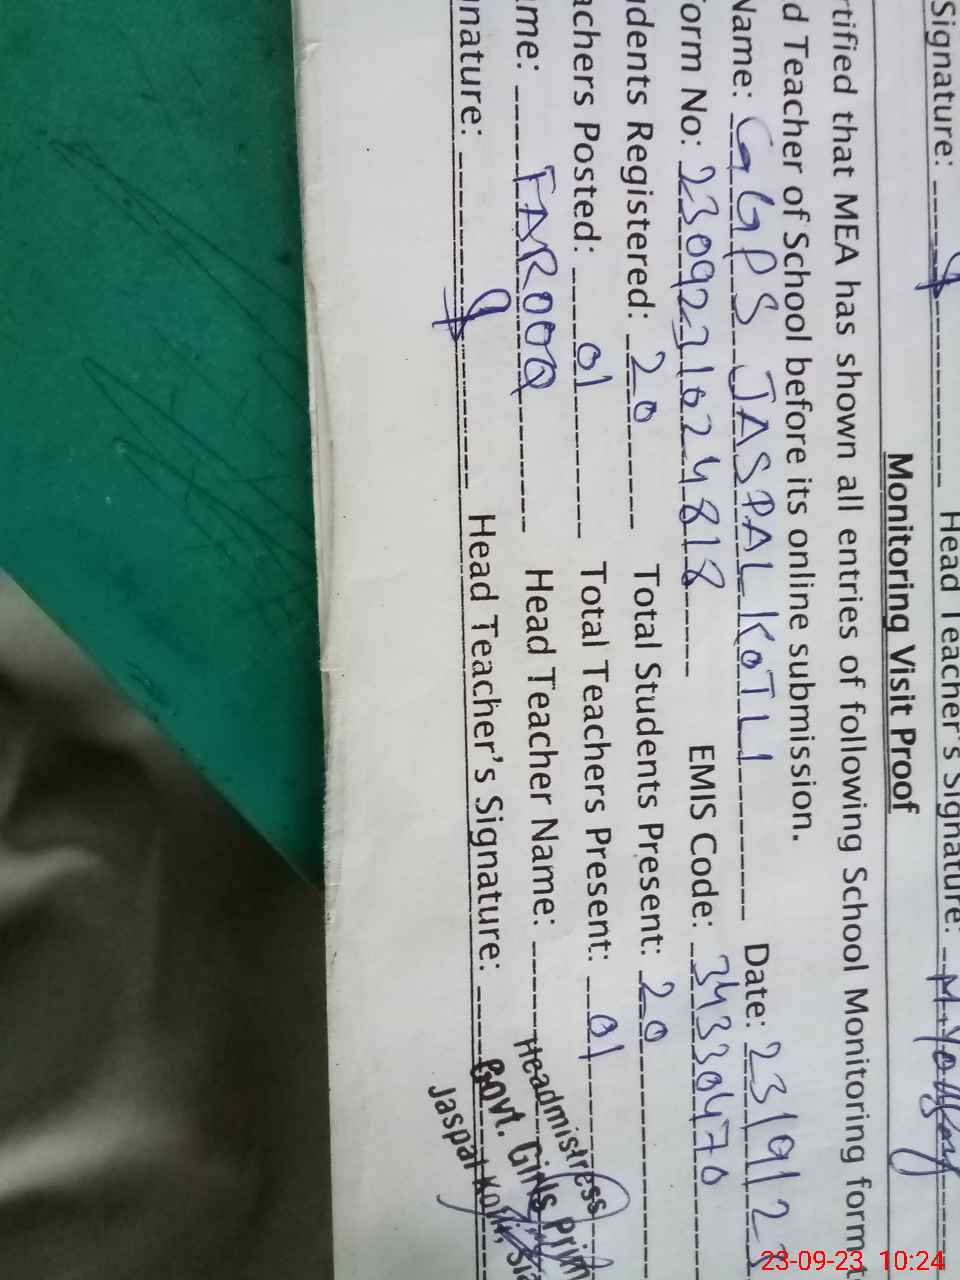 Signature: Head Teacher's Signature: M.Yousaf
Monitoring Visit Proof
rtified that MEA has shown all entries of following School Monitoring form t
d Teacher of School before its online submission.
Name: GGPS JASPAL KOTLI Date: 23/9/2
orm No: 2309231024818 EMIS Code: 34330470
dents Registered: 20 Total Students Present: 20
achers Posted: 01 Total Teachers Present: 01
me: FAROOQ Head Teacher Name:
nature: Head Teacher's Signature:
Headmistress
Govt. Girls Prim
Jaspal Kotli
23-09-23 10:24